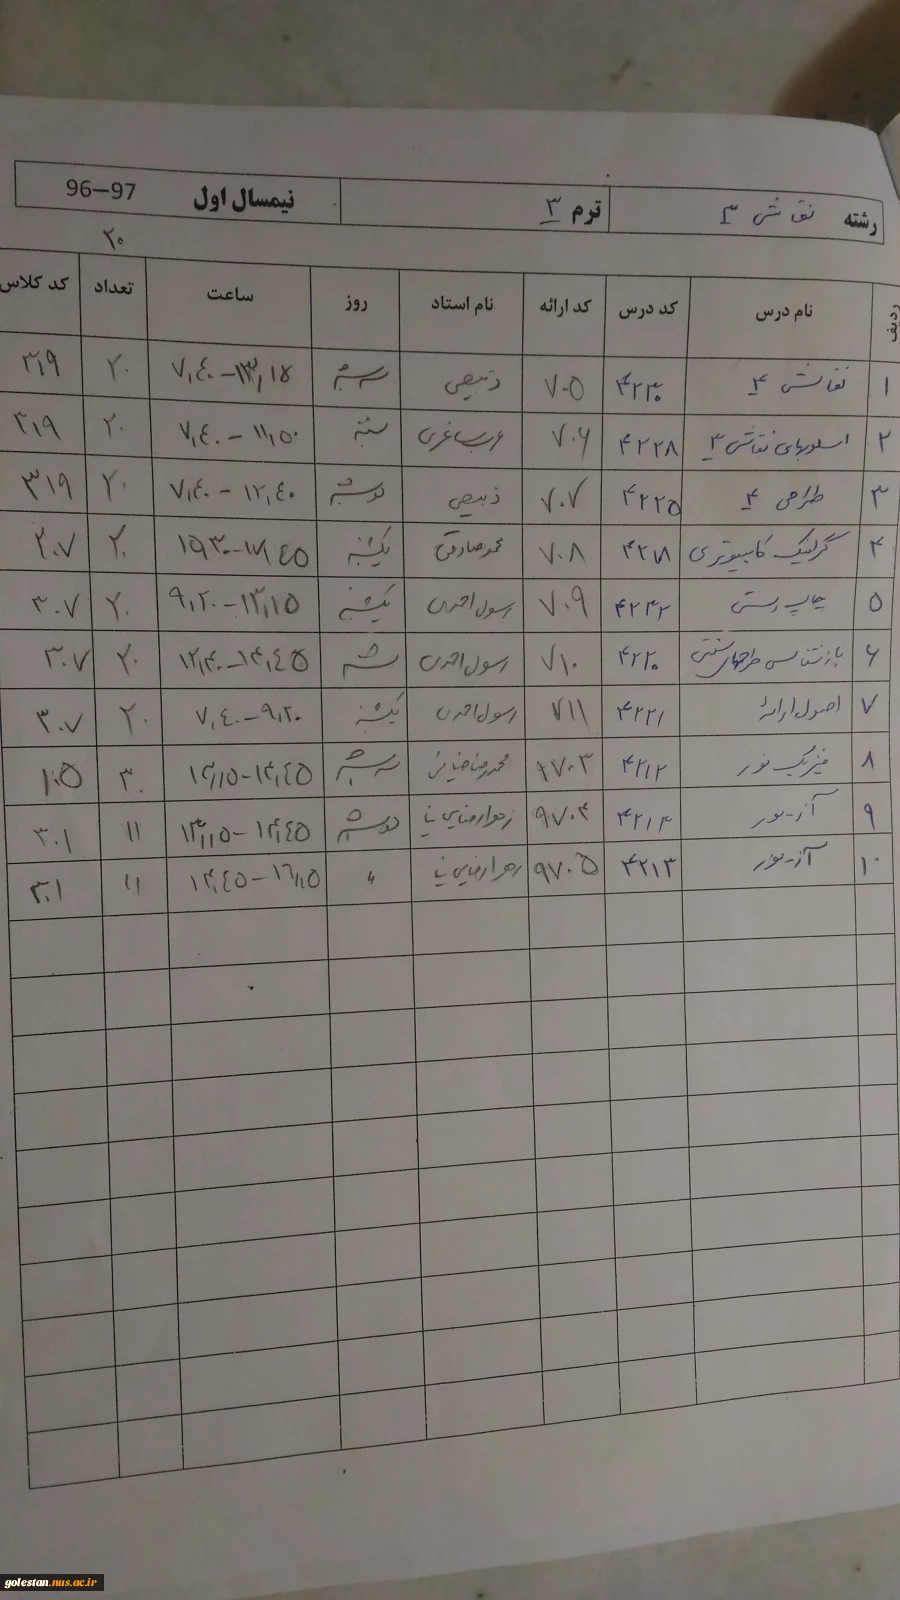 رشته نقاشی ۳ ترم ۳ نیمسال اول 96–97
۲۰
ردیف نام درس کد درس کد ارائه نام استاد روز ساعت تعداد کد کلاس
۱ نقاشی ۴ ۴۲۳۰ ۷۰۵ ذبیحی سه شنبه ۷,۴۰–۱۳,۱۵ ۲۰ ۳۱۹
۲ اسلوبهای نقاشی ۳ ۴۲۲۸ ۷۰۶ شنبه ۷,۴۰–۱۱,۵۰ ۲۰ ۳۱۹
۳ طراحی ۴ ۴۲۲۵ ۷۰۷ ذبیحی دوشنبه ۷,۴۰–۱۲,۴۰ ۲۰ ۳۱۹
۴ گرافیک کامپیوتری ۷۰۸ محمد صادقی یکشنبه ۲۰ ۲۰۷
۵ چاپ دستی ۴۲۴۲ ۷۰۹ رسول احمدی یکشنبه ۹,۲۰–۱۳,۱۵ ۲۰ ۳۰۷
۶ بازشناسی طرحهای سنتی ۴۲۲۰ ۷۱۰ رسول احمدی شنبه ۲۰ ۳۰۷
۷ اصول ارائه ۴۲۲۱ ۷۱۱ رسول احمدی یکشنبه ۷,۴۰–۹,۲۰ ۲۰ ۳۰۷
۸ فیزیک نور ۴۲۱۲ ۹۷۰۳ محمدرضا ضیایی سه شنبه ۱۳,۱۵–۱۴,۴۵ ۳۰ ۱۰۵
۹ آز-نور ۹۷۰۴ زهرا رضایی نیا دوشنبه ۱۳,۱۵–۱۴,۴۵ ۱۱ ۳۰۱
۱۰ آز-نور ۴۲۱۳ ۹۷۰۵ زهرا رضایی نیا 〃 ۱۴,۴۵–۱۶,۱۵ ۱۱ ۳۰۱
golestan.nus.ac.ir